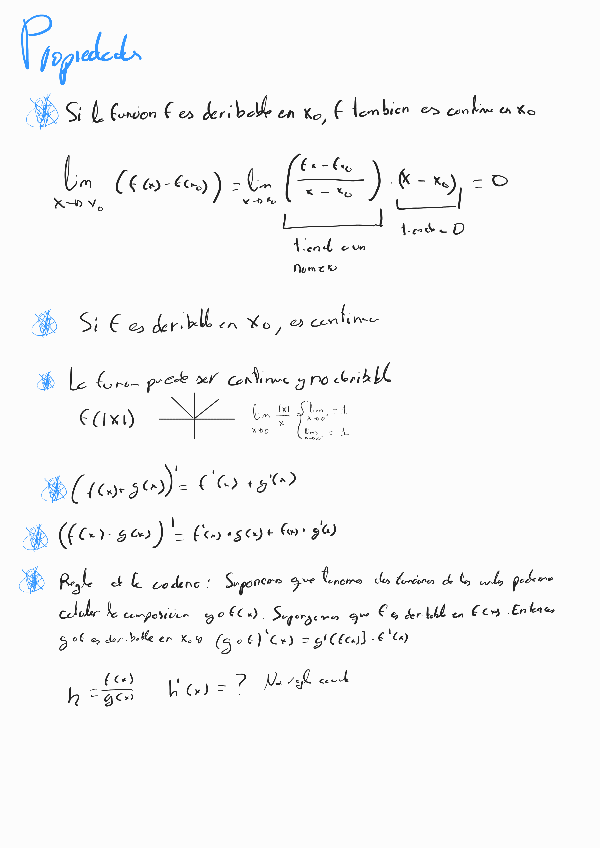 Propiedades
Si la funcion f es deribable en x₀, f tambien es continua en x₀
lim x→x₀ (f(x)-f(x₀)) = lim x→x₀ (fx-fx₀ / x-x₀) · (x-x₀) = 0
tiende a un tiende a 0
numero
Si f es deribable en x₀, es continua
La funcion puede ser continua y no deribable
f(|x|) lim x→0 |x|/x { lim = -1
lim = 1
(f(x)+g(x))' = f'(x) + g'(x)
(f(x)·g(x))' = f'(x)·g(x)+f(x)·g'(x)
Regla de la cadena: Suponemos que tenemos dos funciones de las cuales podemos
calcular la composicion g∘f(x). Supongamos que f es deribable en f(x). Entonces
g∘f es deribable en x₀ (g∘f)'(x) = g'(f(x))·f'(x)
h = f(x)/g(x) h'(x) = ?